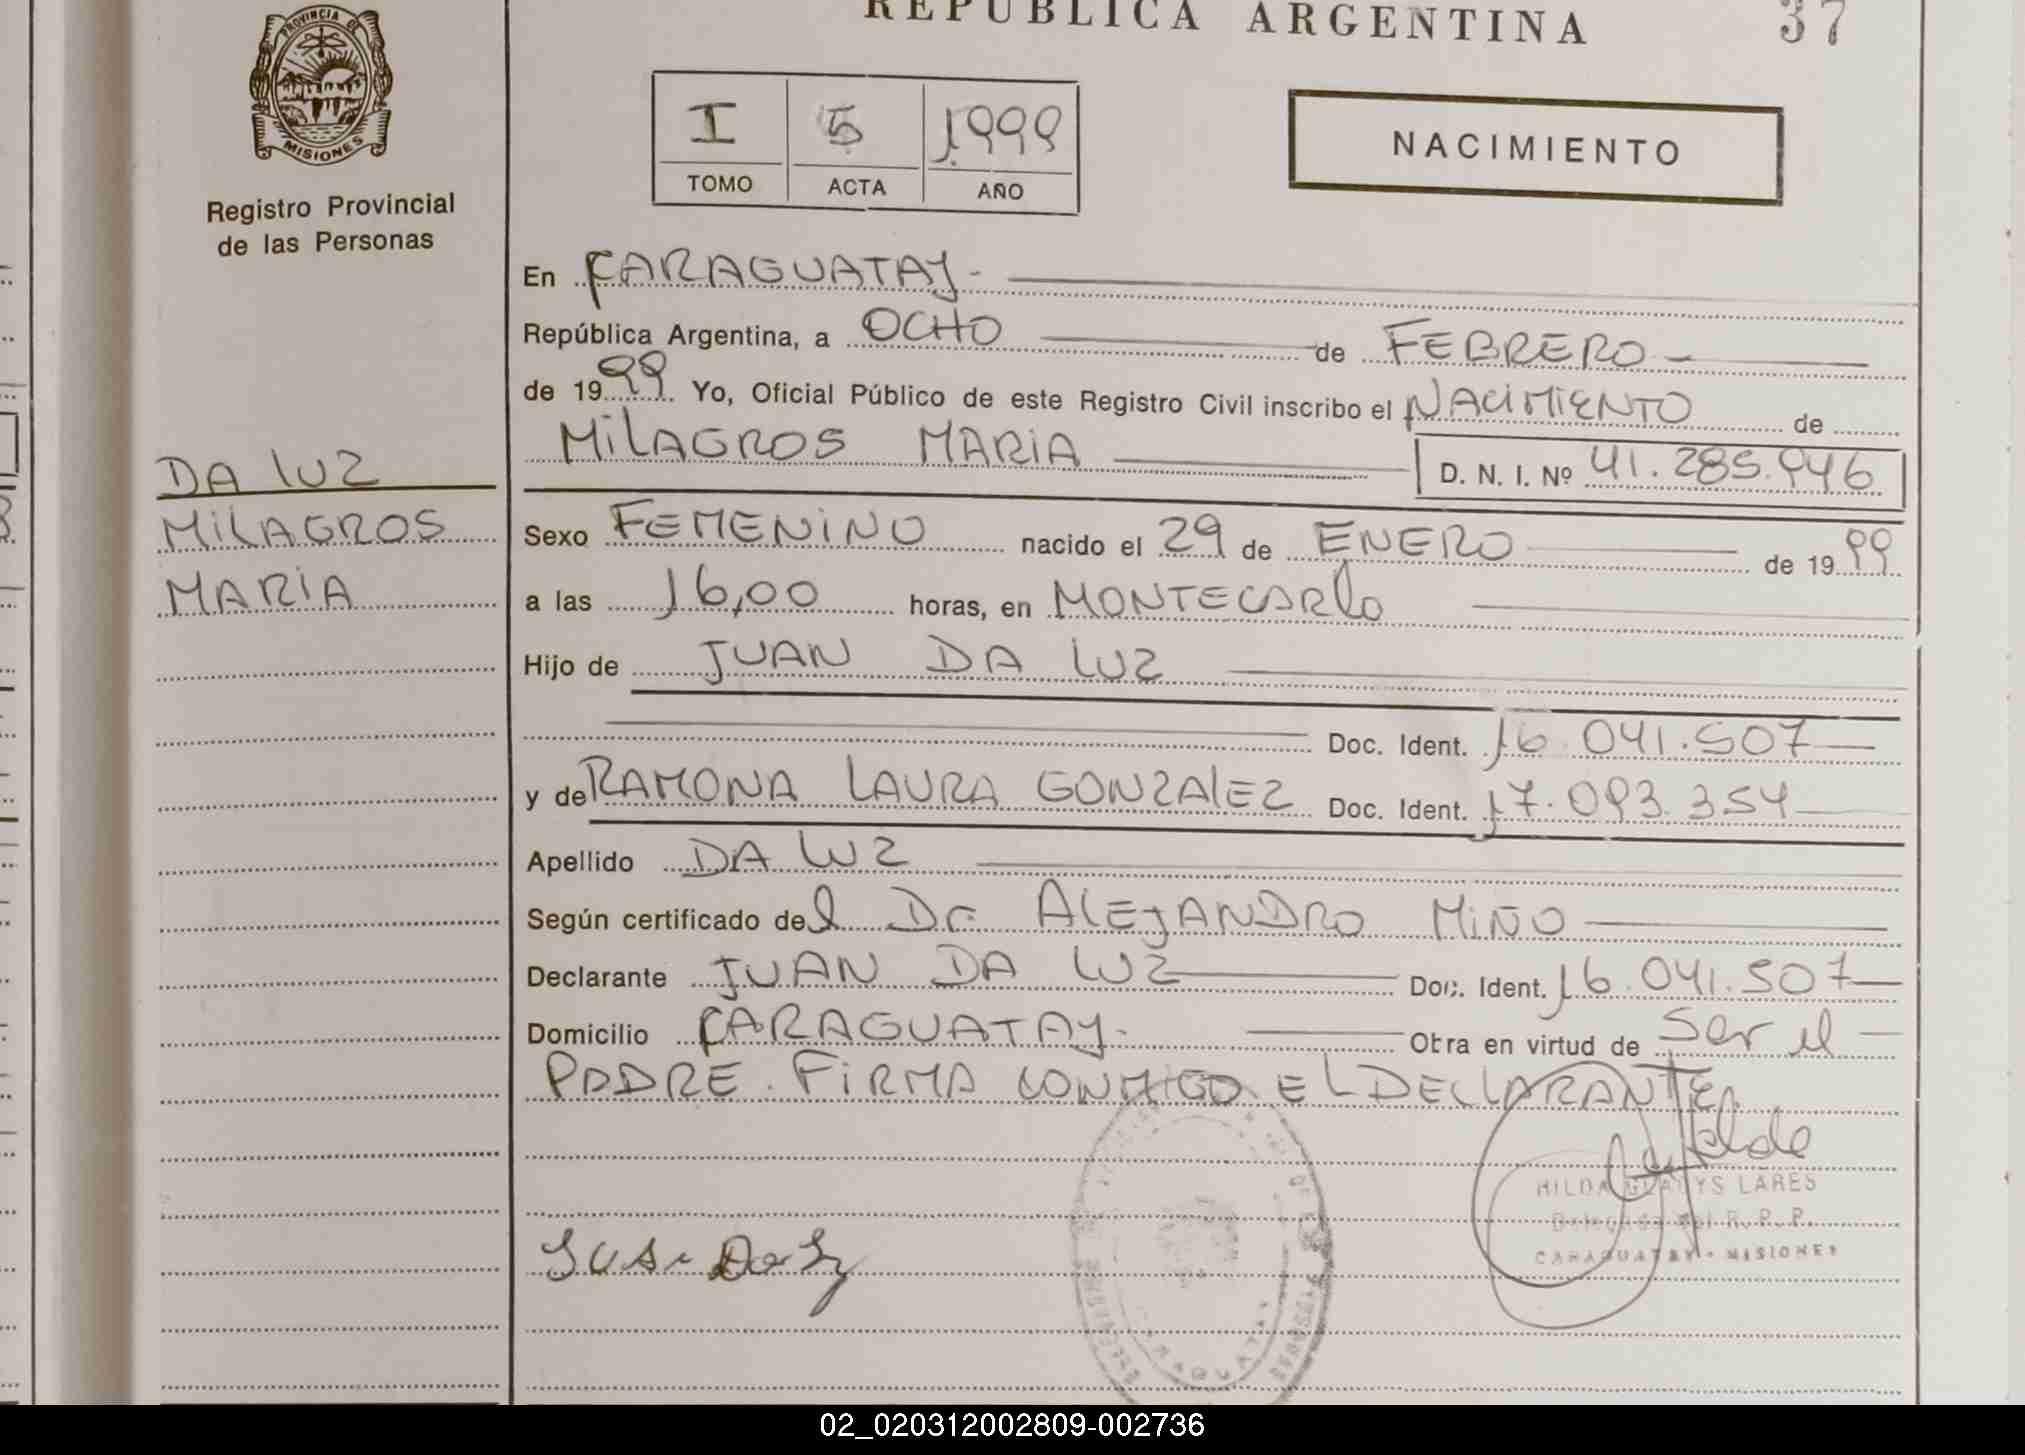 REPUBLICA ARGENTINA 37
PROVINCIA DE
MISIONES
Registro Provincial
de las Personas
I 5 1999
TOMO ACTA AÑO
NACIMIENTO
En CARAGUATAY.
República Argentina, a OCHO de FEBRERO
de 1999 Yo, Oficial Público de este Registro Civil inscribo el NACIMIENTO de
MILAGROS MARIA D. N. I. Nº 41.285.946
DA LUZ
MILAGROS
MARIA
Sexo FEMENINO nacido el 29 de ENERO de 1999
a las 16,00 horas, en MONTECARLO
Hijo de JUAN DA LUZ
Doc. Ident. 16.041.507
y de RAMONA LAURA GONZALEZ Doc. Ident. 17.093.354
Apellido DA LUZ
Según certificado del Dr ALEJANDRO MIÑO
Declarante JUAN DA LUZ Doc. Ident. 16.041.507
Domicilio CARAGUATAY. Otra en virtud de ser el
PADRE. FIRMA CONMIGO EL DECLARANTE.
HILDA GLADYS LARES
Delegada del R. P. P.
CARAGUATAY - MISIONES
02_020312002809-002736